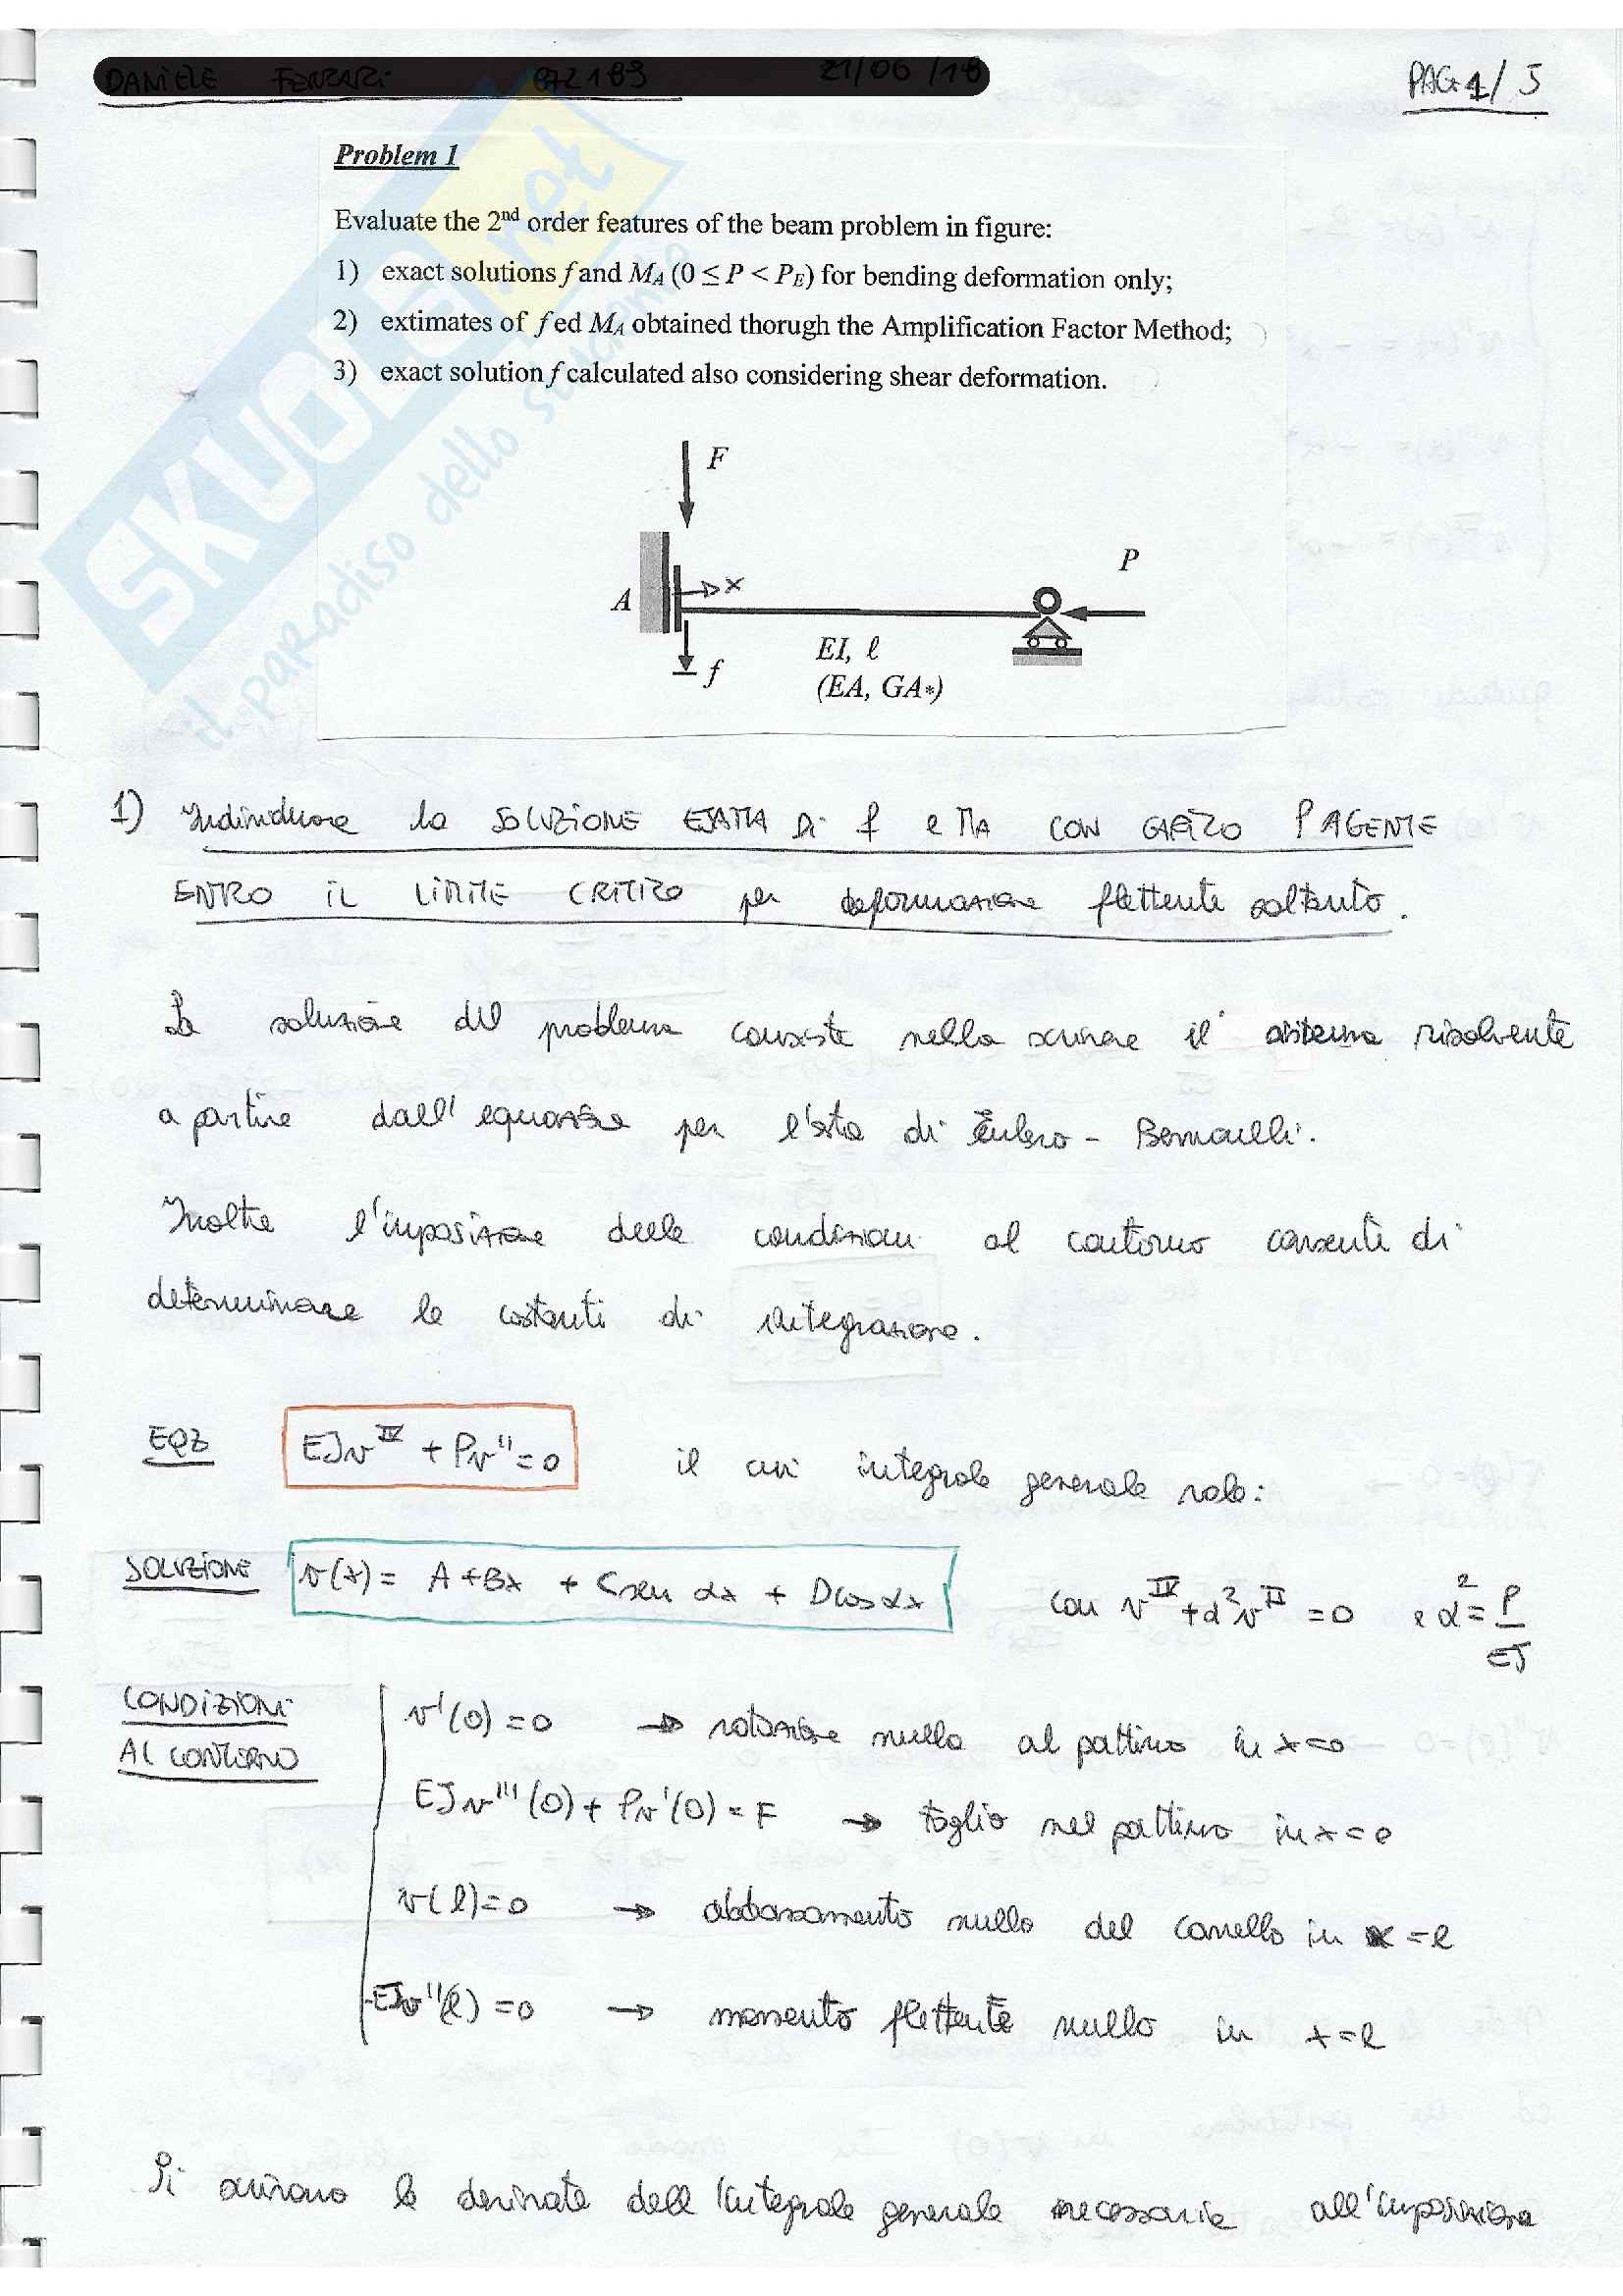 PAG. 1/5
Problem 1
Evaluate the 2nd order features of the beam problem in figure:
1) exact solutions f and MA (0 ≤ P < PE) for bending deformation only;
2) extimates of f ed MA obtained thorugh the Amplification Factor Method;
3) exact solution f calculated also considering shear deformation.
F
P
A
x
EI, ℓ
f
(EA, GA*)
SKUOLA.net
il paradiso dello studente
1) Individuare la SOLUZIONE ESATTA DI f e MA CON CARICO P AGENTE
ENTRO IL LIMITE CRITICO per deformazione flettente soltanto.
La soluzione del problema consiste nello scrivere il sistema risolvente
a partire dall'equazione per l'asta di Eulero - Bernoulli.
Inoltre l'imposizione delle condizioni al contorno consente di
determinare le costanti di integrazione.
EQZ EJv^IV + Pv'' = 0 il cui integrale generale vale:
SOLUZIONE v(x) = A + Bx + C sen αx + D cos αx con v^IV + α²v^II = 0 e α² = P/EJ
CONDIZIONI AL CONTORNO
v'(0) = 0 → rotazione nulla al pattino in x=0
EJv'''(0) + Pv'(0) = F → taglio nel pattino in x=0
v(l) = 0 → abbassamento nullo del carrello in x=l
-EJv''(l) = 0 → momento flettente nullo in x=l
Si scrivono le derivate dell'integrale generale necessarie all'imposizione